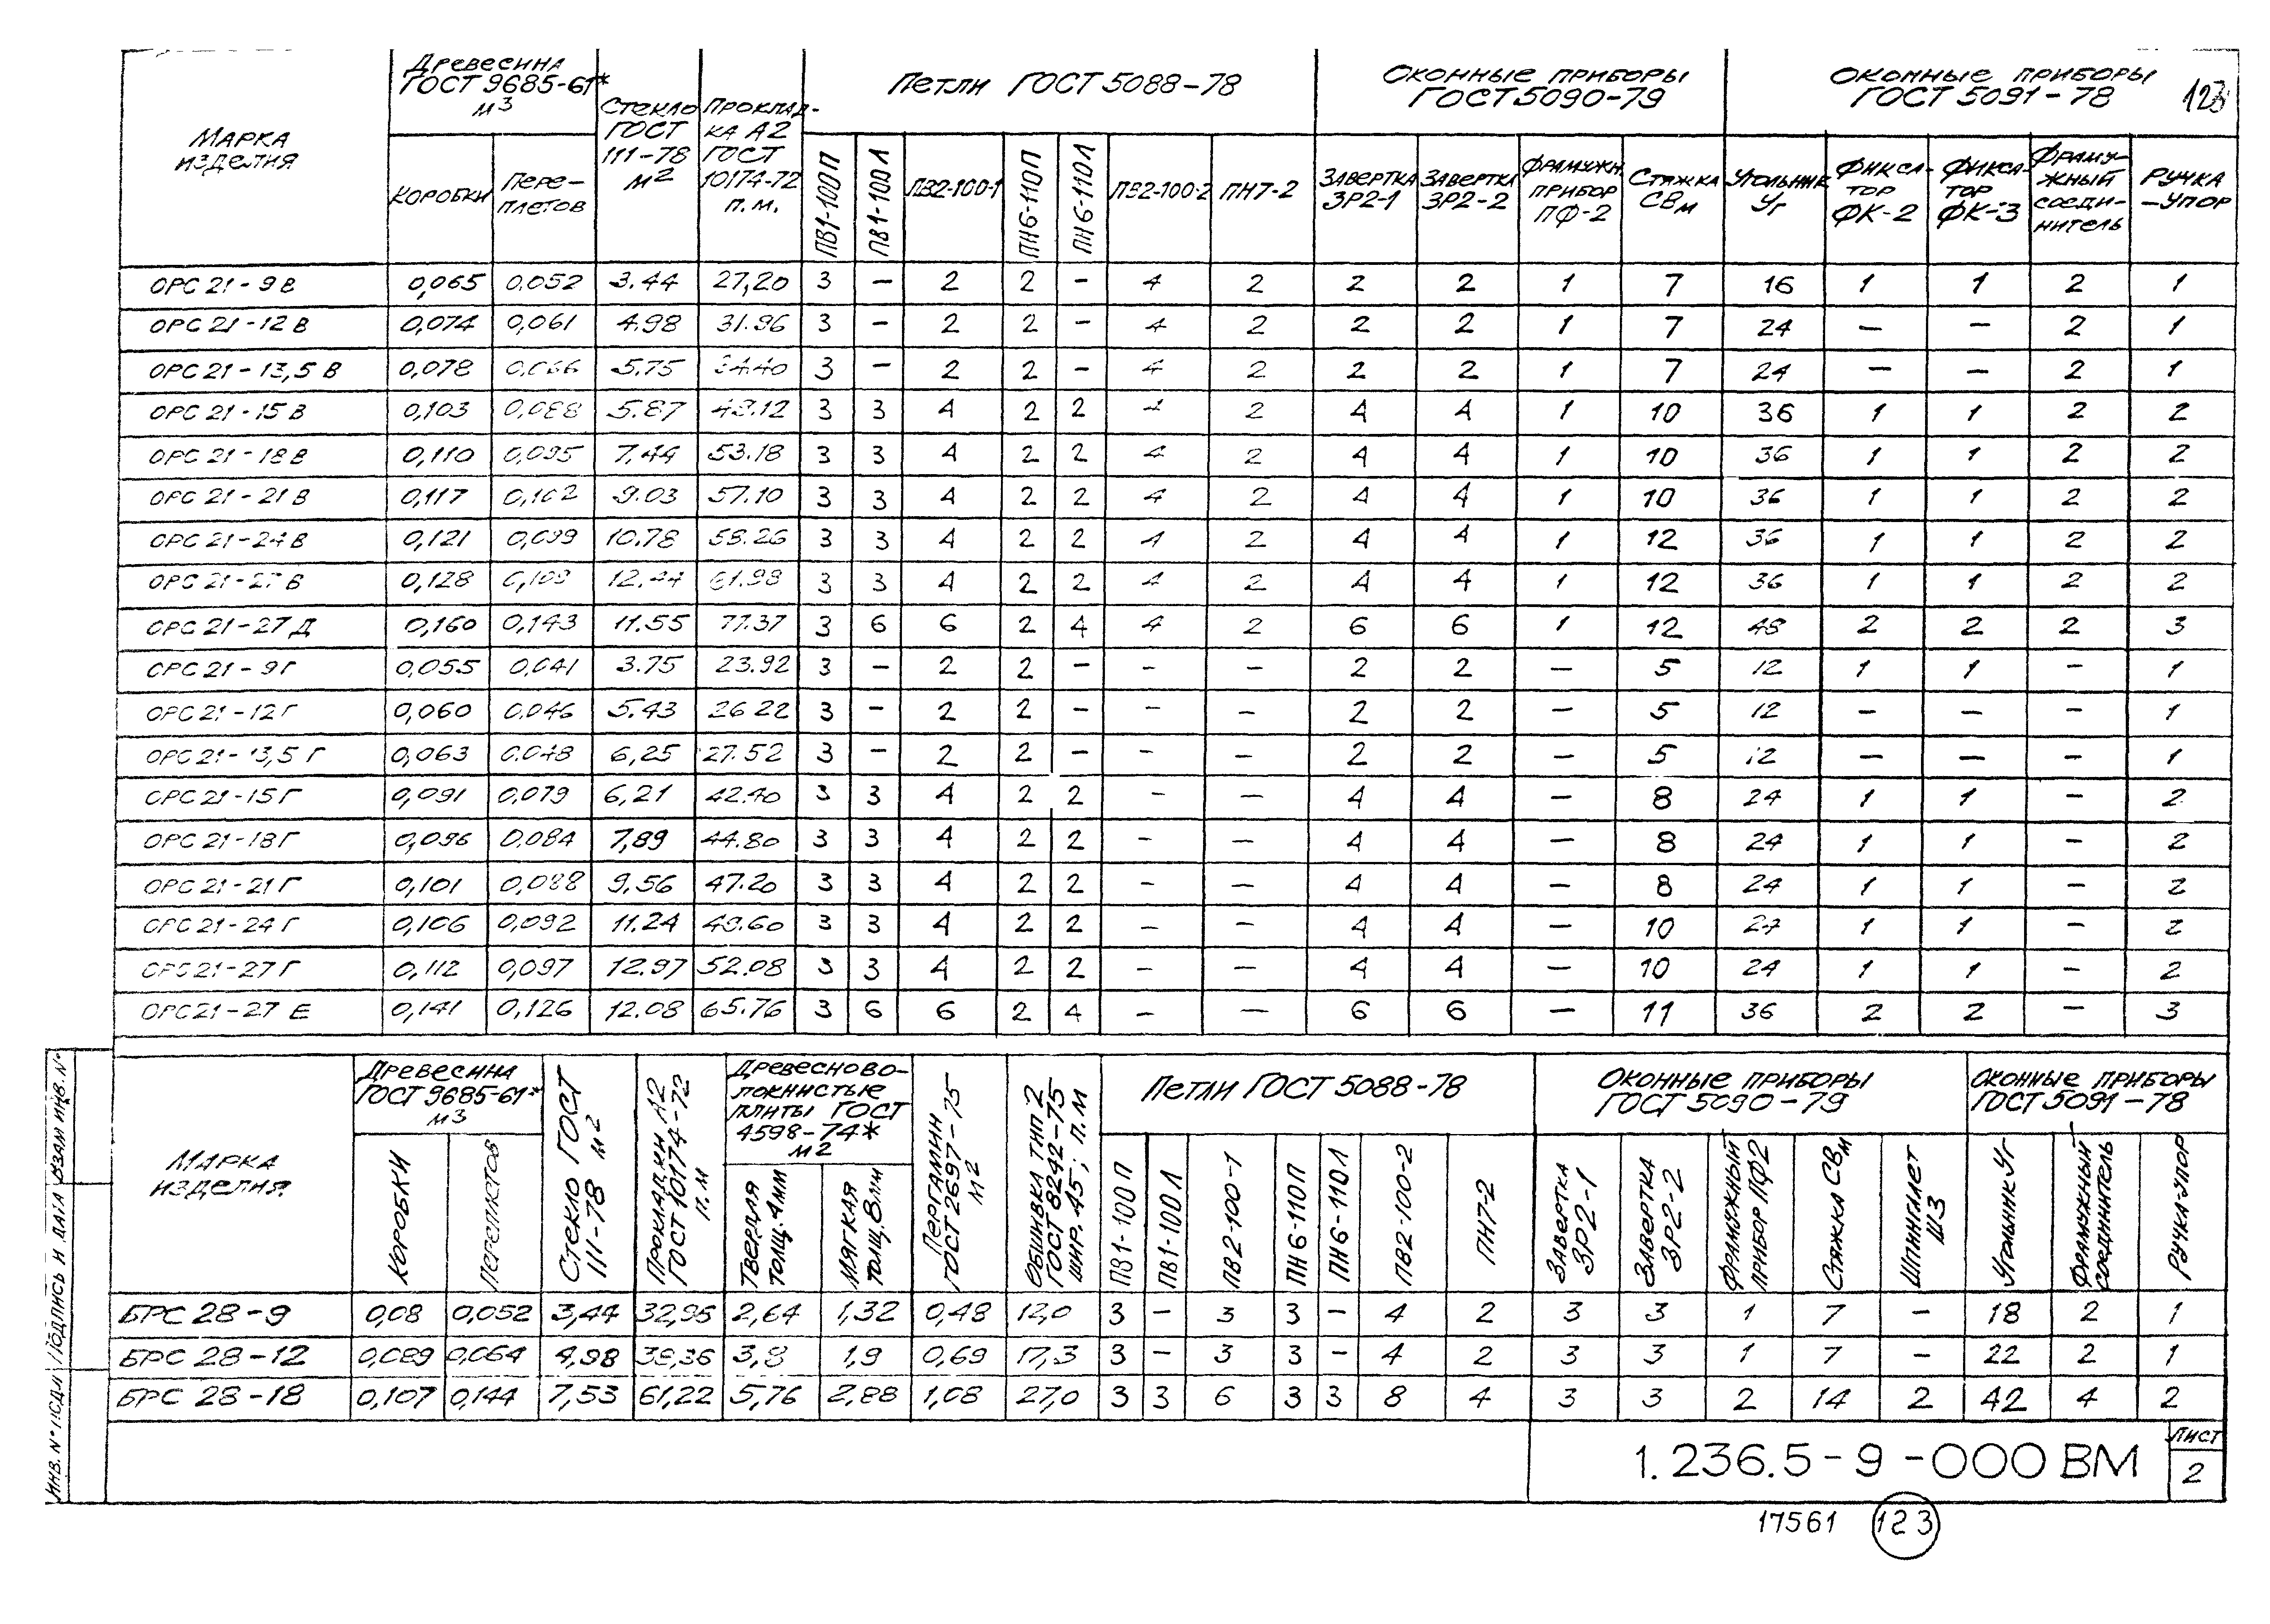 Марка изделия | Древесина ГОСТ 9685-61* м3 | Стекло ГОСТ 111-78 м2 | Прокладка А2 ГОСТ 10174-72 п.м. | Петли ГОСТ 5088-78 | Оконные приборы ГОСТ 5090-79 | Оконные приборы ГОСТ 5091-78 | 123
Коробки | Переплетов | ПВ1-100П | ПВ1-100Л | ПВ2-100-1 | ПН6-110П | ПН6-110Л | ПВ2-100-2 | ПН7-2 | Завертка ЗР2-1 | Завертка ЗР2-2 | Фрамужн. прибор ПФ-2 | Стяжка СВм | Угольник Уг | Фиксатор ФК-2 | Фиксатор ФК-3 | Фрамужный соединитель | Ручка-упор
ОРС 21-9В 0,065 0.052 3.44 27,20 3 – 2 2 – 4 2 2 2 1 7 16 1 1 2 1
ОРС 21-12В 0,074 0,061 4.98 31.96 3 – 2 2 – 4 2 2 2 1 7 24 – – 2 1
ОРС 21-13,5В 0,078 0,066 5.75 34.40 3 – 2 2 – 4 2 2 2 1 7 24 – – 2 1
ОРС 21-15В 0,103 0,088 5.87 3 3 4 2 2 4 2 4 4 1 10 36 1 1 2 2
ОРС 21-18В 0,110 0,095 7,44 53.18 3 3 4 2 2 4 2 4 4 1 10 36 1 1 2 2
ОРС 21-21В 0,117 0,102 9.03 57.10 3 3 4 2 2 4 2 4 4 1 10 36 1 1 2 2
ОРС 21-24В 0,121 0,099 10.78 58.26 3 3 4 2 2 4 2 4 4 1 12 36 1 1 2 2
ОРС 21-27В 0,128 12.44 61.98 3 3 4 2 2 4 2 4 4 1 12 36 1 1 2 2
ОРС 21-27Д 0,160 0,143 11.55 77.37 3 6 6 2 4 4 2 6 6 1 12 48 2 2 2 3
ОРС 21-9Г 0,055 0.041 3.75 23.92 3 – 2 2 – – – 2 2 – 5 12 1 1 – 1
ОРС 21-12Г 0,060 0.046 5.43 26 22 3 – 2 2 – – – 2 2 – 5 12 – – – 1
ОРС 21-13,5Г 0,063 0.048 6,25 27.52 3 – 2 2 – – – 2 2 – 5 12 – – – 1
ОРС 21-15Г 0,091 0.079 6,21 42.40 3 3 4 2 2 – – 4 4 – 8 24 1 1 – 2
ОРС 21-18Г 0,096 0.084 7,89 44.80 3 3 4 2 2 – – 4 4 – 8 24 1 1 – 2
ОРС 21-21Г 0,101 0,088 9,56 47.20 3 3 4 2 2 – – 4 4 – 8 24 1 1 – 2
ОРС 21-24Г 0,106 0,092 11.24 49.60 3 3 4 2 2 – – 4 4 – 10 24 1 1 – 2
ОРС 21-27Г 0,112 0,097 12.97 52.08 3 3 4 2 2 – – 4 4 – 10 24 1 1 – 2
ОРС 21-27Е 0,141 0,126 12.08 65.76 3 6 6 2 4 – – 6 6 – 11 36 2 2 – 3
Марка изделия | Древесина ГОСТ 9685-61* м3 | Стекло ГОСТ 111-78 м2 | Прокладки А2 ГОСТ 10174-72 п.м | Древесноволокнистые плиты ГОСТ 4598-74* м2 | Пергамин ГОСТ 2697-75 м2 | Обшивка тип 2 ГОСТ 8242-75 шир. 45; п.м | Петли ГОСТ 5088-78 | Оконные приборы ГОСТ 5090-79 | Оконные приборы ГОСТ 5091-78
Коробки | Переплетов | Твердая толщ. 4мм | Мягкая толщ. 8мм | ПВ1-100П | ПВ1-100Л | ПВ2-100-1 | ПН6-110П | ПН6-110Л | ПВ2-100-2 | ПН7-2 | Завертка ЗР2-1 | Завертка ЗР2-2 | Фрамужный прибор ПФ2 | Стяжка СВм | Шпингалет ШЗ | Угольник Уг | Фрамужный соединитель | Ручка-упор
БРС 28-9 0,08 0,052 3,44 32,95 2,64 1,32 0,48 12,0 3 – 3 3 – 4 2 3 3 1 7 – 18 2 1
БРС 28-12 0,089 0,064 4,98 3,8 1,9 0,69 17,3 3 – 3 3 – 4 2 3 3 1 7 – 22 2 1
БРС 28-18 0,107 0,144 7,53 61,22 5,76 2,88 1,08 27,0 3 3 6 3 3 8 4 3 3 2 14 2 42 4 2
Инв. № подл Подпись и дата Взам инв. №
1.236.5-9-000 ВМ
Лист
2
17561 123